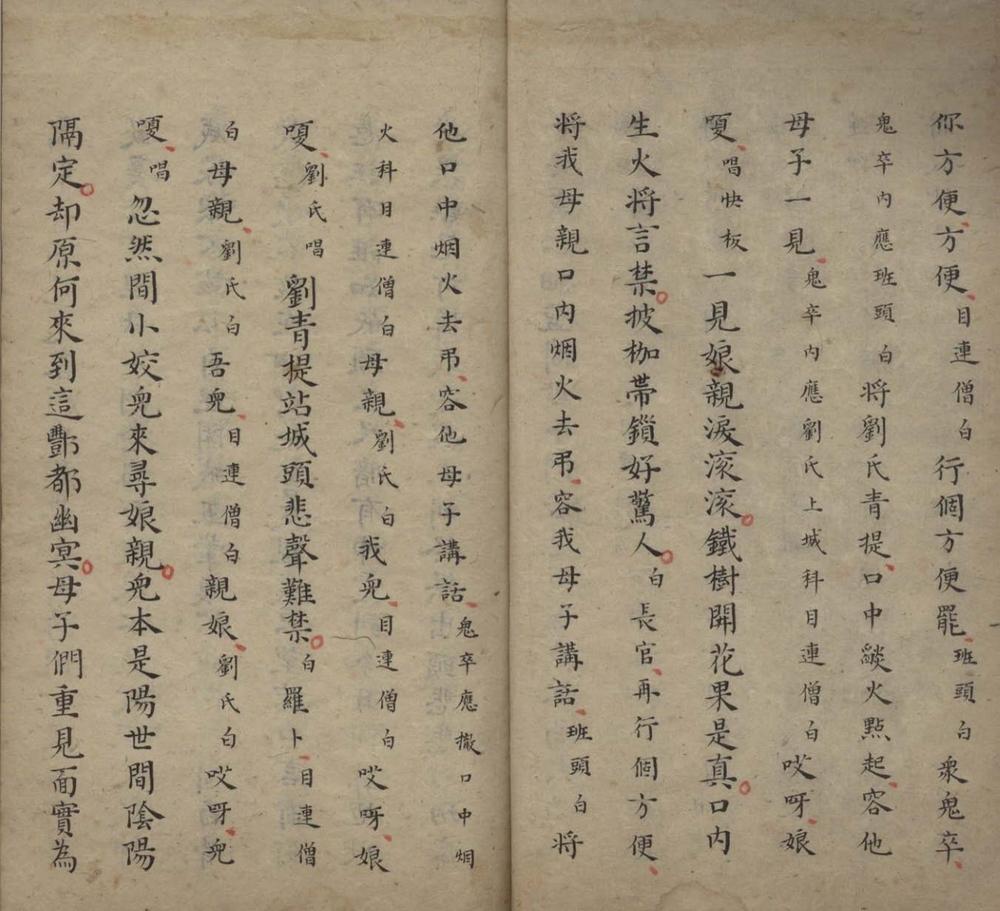 你方便方便目連僧白行個方便罷班頭白衆鬼卒
鬼卒内應班頭白将劉氏青提口中燄火點起容他
母子一見鬼卒内應劉氏上城科目連僧白哎呀娘
嗄唱快板一見娘親淚滚滚鐵樹開花果是真口内
生火将言禁披枷帯鎖好驚人白長官再行個方便
将我母親口内烟火去帋容我母子講話班頭白将
他口中烟火去帋容他母子講話鬼卒應撤口中烟
火科目連僧白母親劉氏白我兒目連僧白哎呀娘
嗄劉氏唱劉青提站城頭悲聲難禁白羅卜目連僧
白母親劉氏白吾兒目連僧白親娘劉氏白哎呀兒
嗄唱忽然間小姣兒來尋娘親兒本是陽世間陰陽
隔定却原何來到這酆都幽冥母子們重見面實為